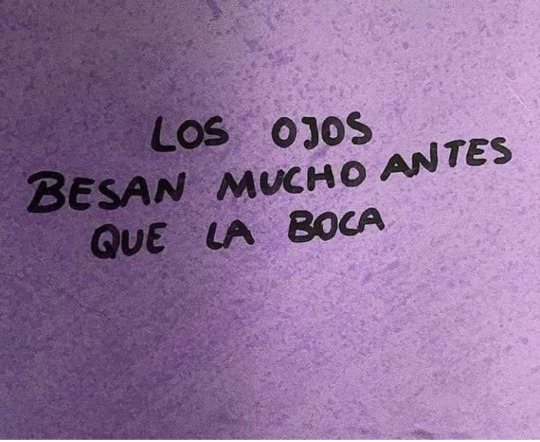 LOS OJOS
BESAN MUCHO ANTES
QUE LA BOCA